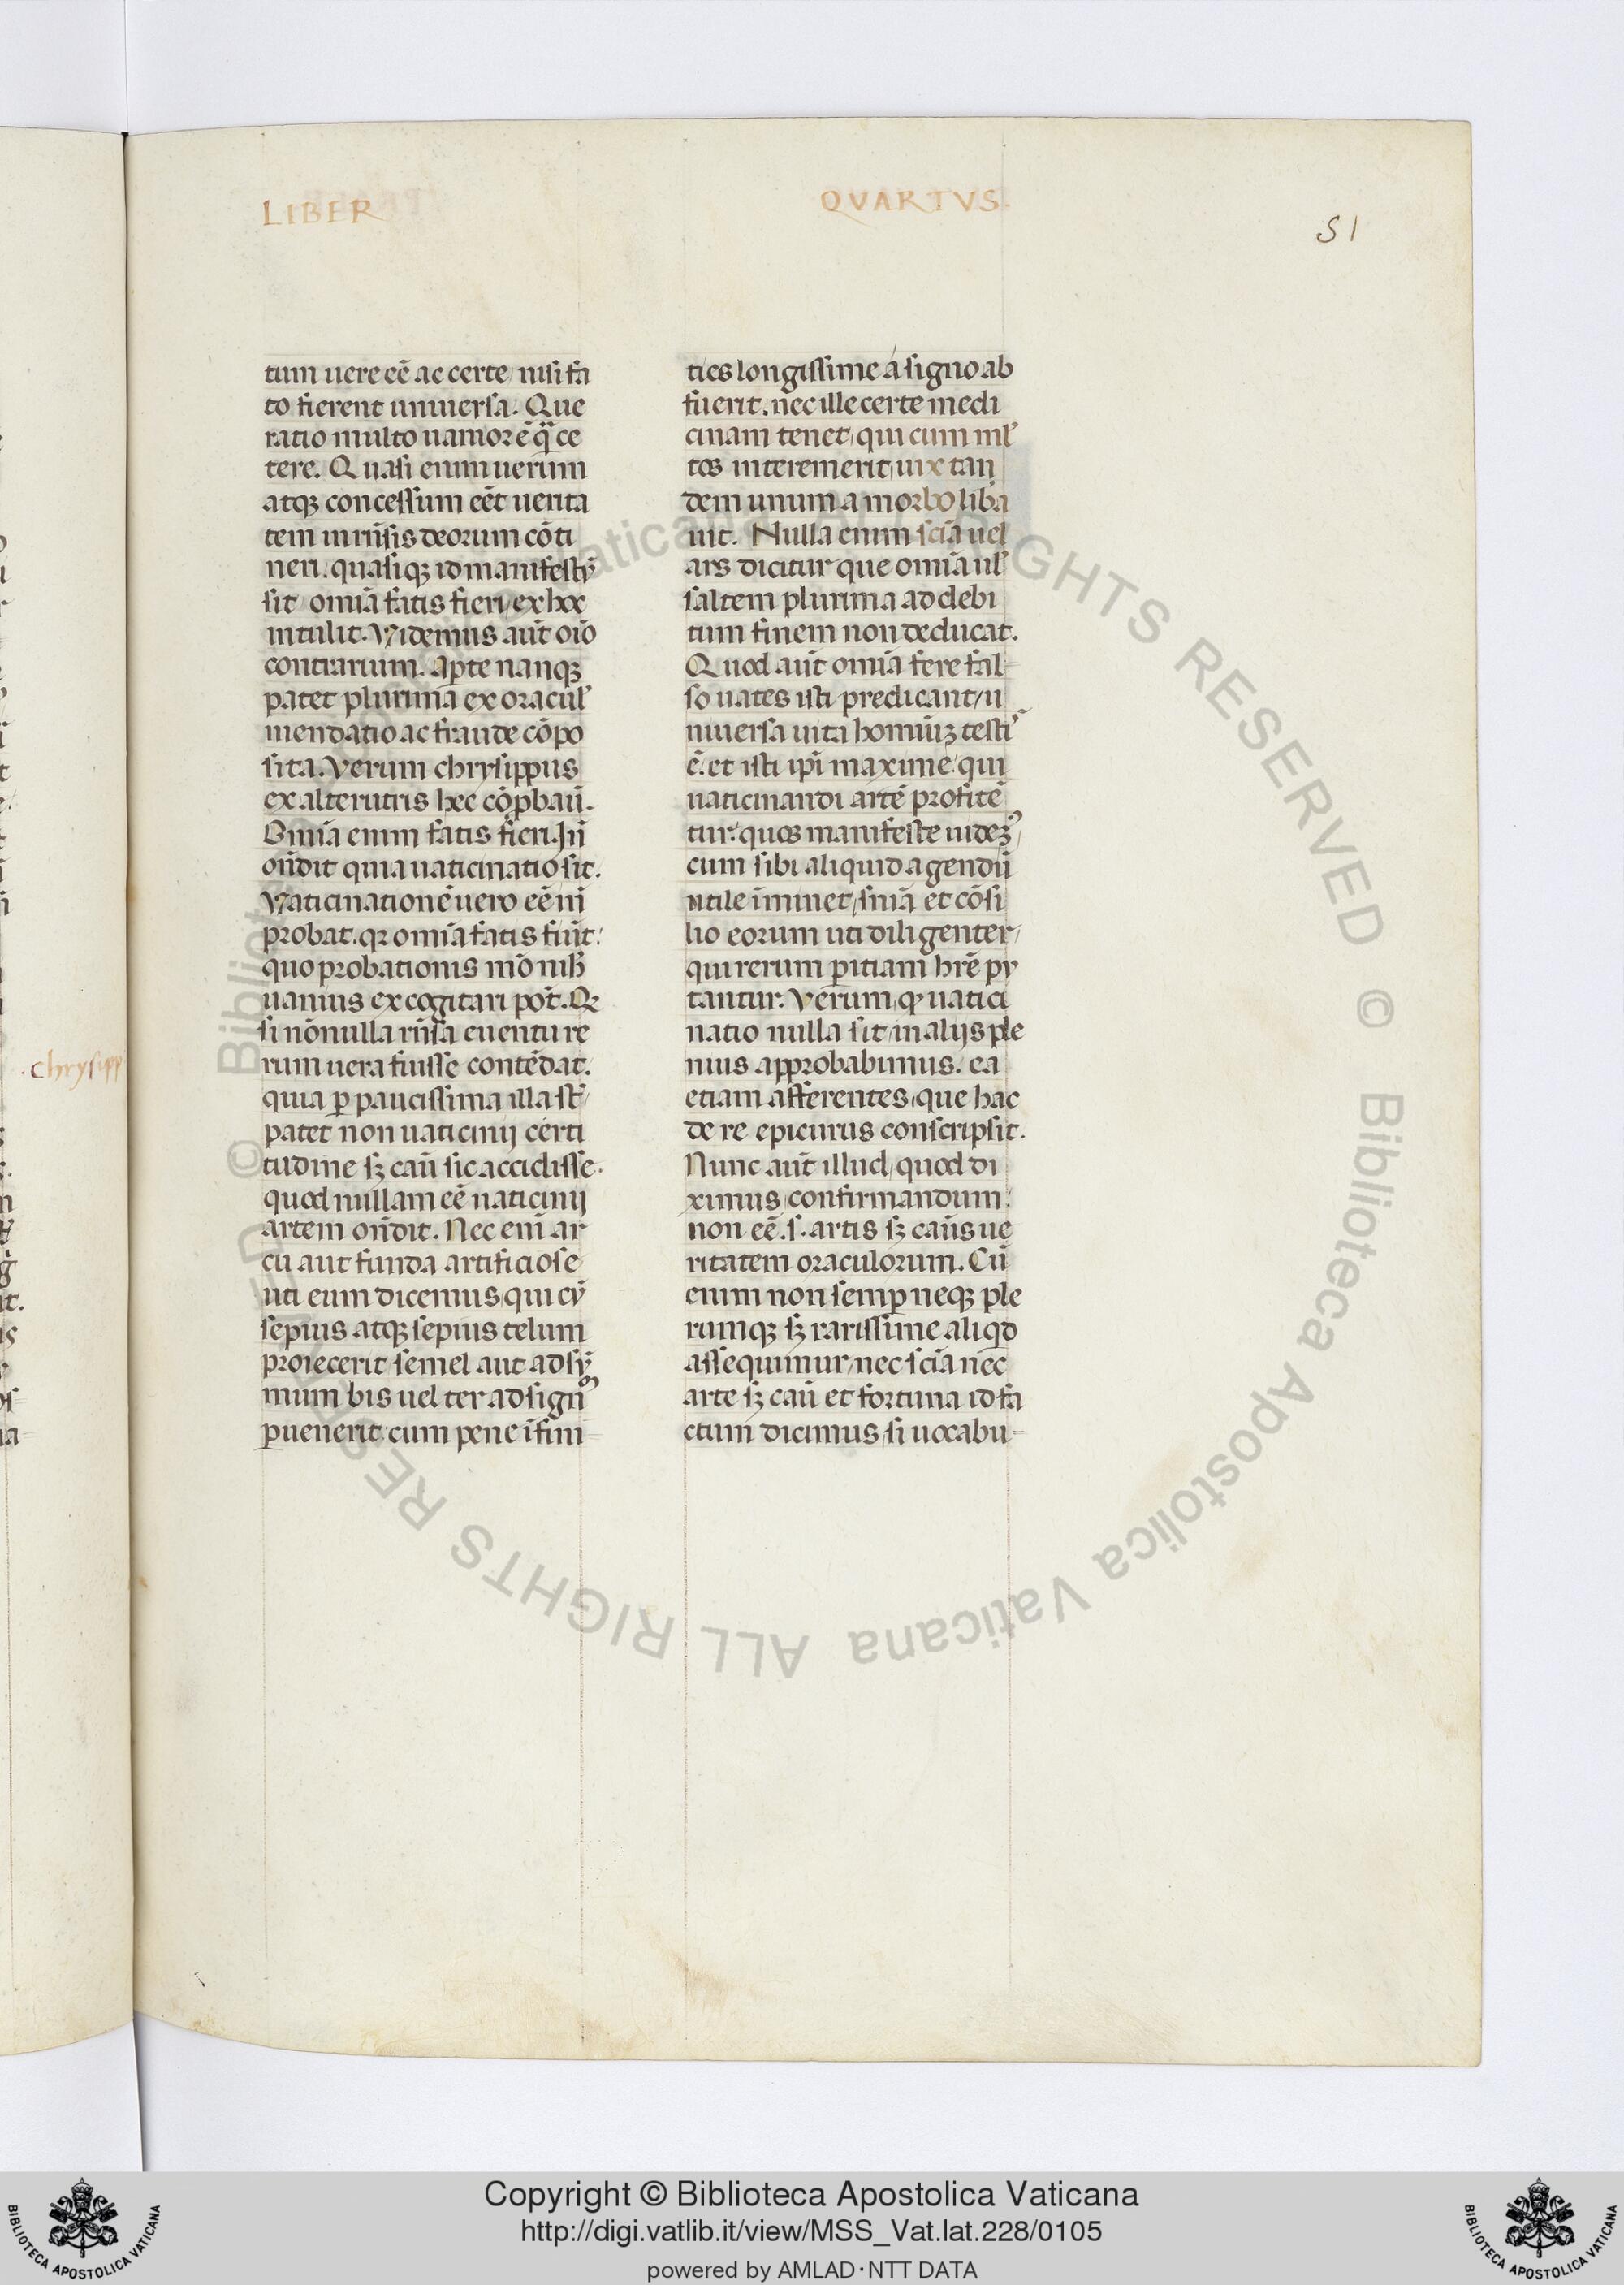 LIBER
QVARTVS.
51
tum uere eē ac certe nisi fa
to fierent uniuersa. Que
ratio multo uanior ē q̄ ce
tere. Quasi enim uerum
atq; concessum eēt uerita
tem in rn̄sis deorum cōti
neri. quasiq; id manifestū
sit omīa fatis fieri, ex hoc
intulit. Videmus aūt oīo
contrarium. Aꝑte nanq;
patet plurima ex oracul'
mendatio ac fraude cōpo
sita. Verum chrysippus
ex alterutris hec cōꝓbauī.
Omīa enim fatis fieri
on̄dit quia uaticinatio sit.
Vaticinationē uero eē
probat. qꝛ omīa fatis fiūt:
quo probationis mō nih̄
uanius excogitari pōt. Qꝛ
si nōnulla rn̄sa euentu re
rum uera fuisse contēdat.
quia ꝑ paucissima illa st̄
patet non uaticinij certi
tudine sꝫ caū sic accidisse.
quod nullam eē uaticinij
artem on̄dit. Nec enī ar
cu aut funda artificiose
uti eum dicemus, qui cū
sepius atq; sepius telum
proiecerit semel aut ad sū
mum bis uel ter ad signū
ꝑuenerit. cum pene īfini=
ties longissime a signo ab
fuerit. nec ille certe medi
cinam tenet, qui cum ml'
tos interemerit, uix tan
dem unum a morbo liba
uit. Nulla enim scīa uel
ars dicitur que omīa ul'
saltem plurima ad debi
tum finem non deducat.
Quod aūt omīa fere fal=
so uates isti predicant, u
niuersa uita hominūꝫ testī
ē. et isti ipī maxime qui
uaticinandi artē profitē
tur. quos manifeste uidem9
cum sibi aliquid agendū
utile īminet, snīa et cōsi
lio eorum uti diligenter,
qui rerum ꝑitiam hr̄e pu
tantur. Verum, ꝙ uatici
natio nulla sit in alijs ple
nius approbabimus. ea
etiam afferentes, que hac
de re epicurus conscripsit.
Nunc aūt illud, quod di
ximus, confirmandum:
non eē .s. artis sꝫ caūs ue
ritatem oraculorum. Cū
enim non semꝑ neq; ple
rumq; sꝫ rarissime aliqd
assequimur, nec scīa nec
arte sꝫ caū et fortuna id fa
ctum dicimus, si uocabu=
chrysipp
Copyright © Biblioteca Apostolica Vaticana
http://digi.vatlib.it/view/MSS_Vat.lat.228/0105
powered by AMLAD·NTT DATA
BIBLIOTECA APOSTOLICA VATICANA
BIBLIOTECA APOSTOLICA VATICANA
© Biblioteca Apostolica Vaticana ALL RIGHTS RESERVED
© Biblioteca Apostolica Vaticana ALL RIGHTS RESERVED